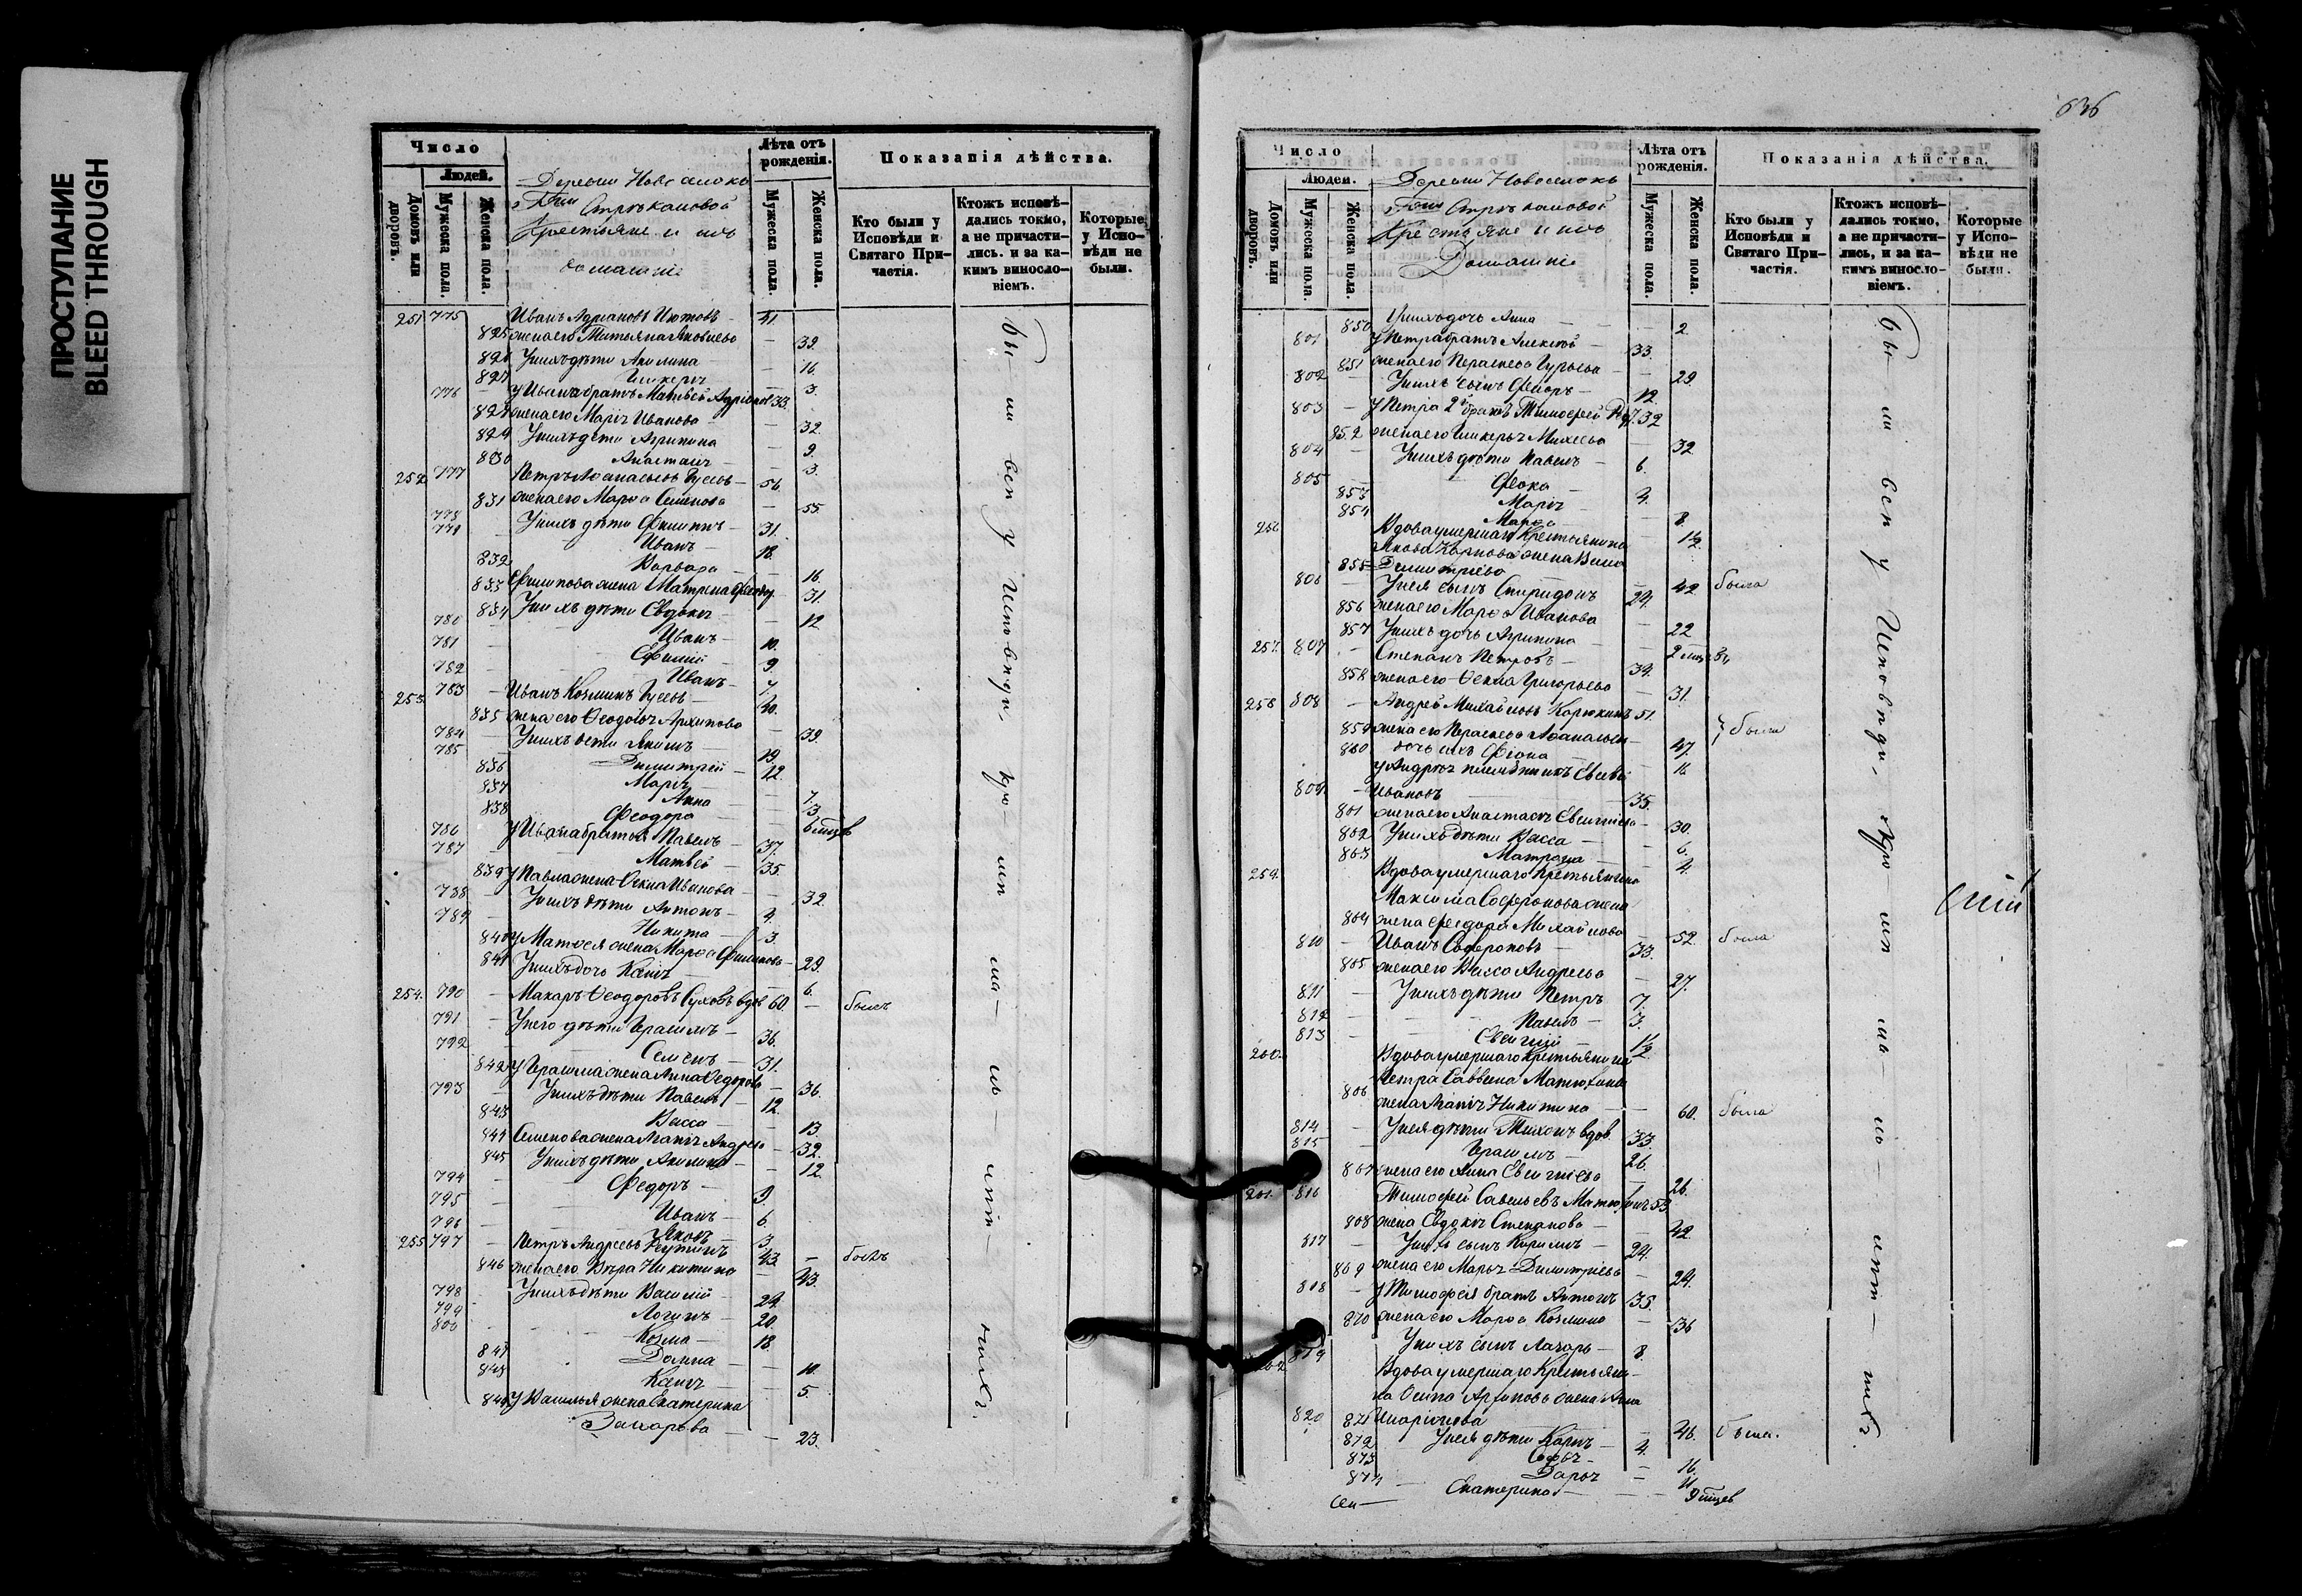 ПРОСТУПАНИЕ
BLEED THROUGH
Число
Людей.
Домовъ или дворовъ.
Мужеска пола.
Женска пола.
Деревни Новоселокъ
Г-жи Стрекаловой
Крестьяне и ихъ
домашніе
Лѣта отъ рожденія.
Мужеска пола.
Женска пола.
Показанія дѣйства.
Кто были у Исповѣди и Святаго Причастія.
Ктожъ исповѣдались токмо, а не причастились, и за какимъ винословіемъ.
Которые у Исповѣди не были.
251 775 Иванъ Адриановъ 41.
825 жена его Татьяна Яковлева — 39.
826 У нихъ дѣти Акилина — 16.
827 Гликерія — 3.
776 — У Ивана братъ Матвей Адріанов 33.
828 жена его Марія Иванова — 32.
829 У нихъ дѣти Агрипина — 9.
830 Анастасія — 3.
252 777 Петръ Афанасьевъ Гусевъ — 56.
831 жена его Марѳа Семенова — 55.
778 У нихъ дѣти Филиппъ — 31.
779 — Иванъ — 18.
832 Варвара — 16.
833 Филипова жена Матрена 31.
834 У нихъ дѣти Евдокія — 12
780 — Иванъ — 10.
781 — Ефимій — 9.
782 — Иванъ — 7.
253. 783 — Иванъ Козминъ Гусевъ — 40.
835 жена его Ѳеодосія Архипова — 39.
784 — У нихъ дети Якимъ — 19.
785 — Димитрій — 12.
836 Марія — 7.
837 Анна — 3.
838 Феодора — 6 мцевъ
786 У Ивана братья Павелъ — 37.
787 — Матвей — 35.
839 У Павла жена Ѳекла Иванова — 32.
788 — У нихъ дѣти Антонъ — 4.
789 — Никита — 3.
840 У Матвея жена Марѳа Филипова — 29.
841 У нихъ дочь Ксенія — 6.
254. 790 — Макаръ Ѳеодоровъ Суховъ вдов 60. — былъ
791 — У него дѣти Герасимъ — 36.
792 — Семенъ — 31.
842 У Герасима жена Анна Ѳедорова — 36.
793 — У нихъ дѣти Павелъ — 12.
843 Васса — 13.
844 Семенова жена Агапія Андрева — 32.
845 У нихъ дѣти Акилина — 12.
794 — Федоръ — 9.
795 — Иванъ — 6.
796 — Яковъ — 3.
255 797 — Петръ Андреевъ 43. — былъ
846 жена его Вѣра Никитина — 43.
798 — У нихъ дѣти Василій — 24.
799 — Логинъ — 20.
800 — Козма — 18.
847 Домна — 10.
848 Ксенія — 5.
849 У Василья жена Екатерина
Захарова — 23.
бы — ли веп у Исповѣди, кро — мѣ ма — ло — лѣт — нихъ.
636
Число
Людей.
Домовъ или дворовъ.
Мужеска пола.
Женска пола.
Деревни Новоселокъ
Г-жи Стрекаловой
Крестьяне и ихъ
Домашніе
Лѣта отъ рожденія.
Мужеска пола.
Женска пола.
Показанія дѣйства.
Кто были у Исповѣди и Святаго Причастія.
Ктожъ исповѣдались токмо, а не причастились, и за какимъ винословіемъ.
Которые у Исповѣди не были.
850 У нихъ дочь Анна — 2.
801 У Петра братъ Алексей — 33.
851 жена его Параскева Гурьева — 29.
802 — У нихъ сынъ Федоръ — 12.
803 — У Петра 2й братъ Тимофей 32
852 жена его Гликерья Михеева — 32
804 — У нихъ дѣти Павелъ — 6.
805 — Фока — 4.
853 Марія — 8.
854 Марѳа — 1½.
256 Вдова умершаго Крестьянина
Якова Карпова жена
855 Димитріева — 42 была
806 — У нея сынъ Спиридонъ — 24.
856 жена его Марѳа Иванова — 22
857 У нихъ дочь Агрипина — 2 мцев
257. 807 — Степанъ Петровъ — 39.
858 жена его Ѳекла Григорьева — 31.
258 808 — Андрей Михайловъ Карюкинъ 51.
859 жена его Параскева Афанасьев — 47. были
860 дочь ихъ — 16
У Андрея племянникъ
809 — Ивановъ — 35.
861 жена его Анастасія Евстигнеева — 30.
862 У нихъ дѣти Васса — 6.
863 Матрона — 4.
259. Вдова умершаго Крестьянина
Максима Софронова жена
864 жена Феодора Михайлова — 52. была
810 — Иванъ Софроновъ — 33.
865 жена его Васса Андреева — 27.
811 — У нихъ дѣти Петръ 7.
812 — Павелъ — 3.
813 — 1½
260 Вдова умершаго Крестьянина
Петра Саввина Матюхина
866 жена Агапія Никитина — 60. была
814 — У нея дѣти Тихонъ вдов. 33
815 — Герасимъ — 26.
867 жена его Анна 26.
261. 816 Тимофей Савельевъ 53
868 жена Евдокія Степанова — 42
817 — У нихъ сынъ 24.
869 жена его Марья Димитріева — 24.
818 — У Тимофея братъ Антонъ 35.
870 жена его Марѳа Козмина — 36
819 У нихъ сынъ Лазарь — 8.
262 Вдова умершаго Крестьяни-
на Осипа Архипова жена Анна
871 Иларіонова — 46. была.
820 У нея дѣти Карпъ — 4.
872 Софья — 16.
873 Дарья — 11
874 Екатерина — 9 мцев
бы — ли веп у Исповѣди, кро — мѣ ма — ло — лѣт — нихъ.